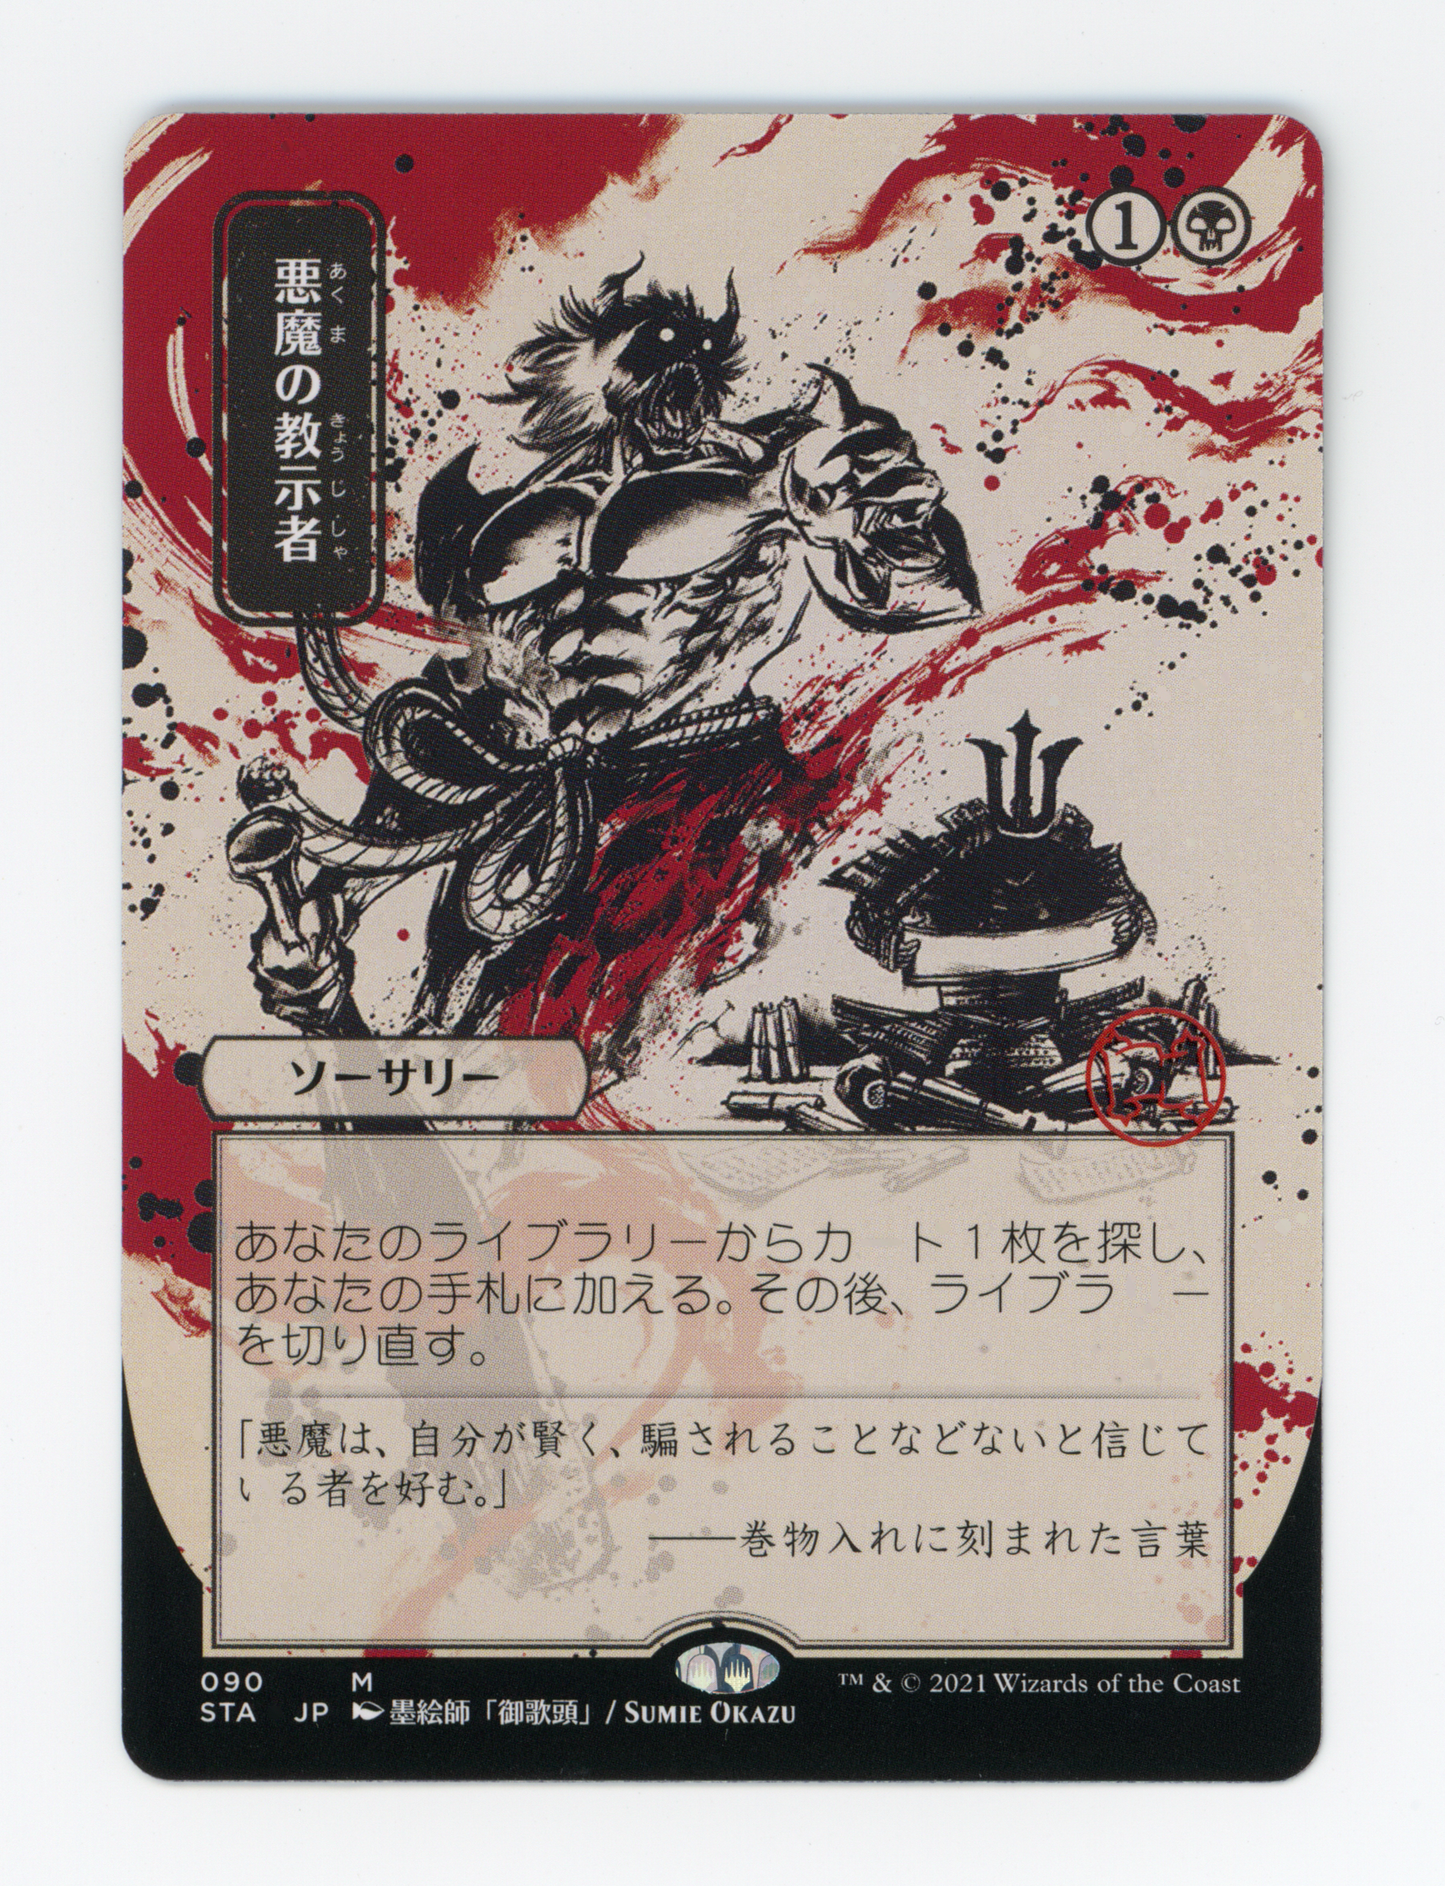 悪魔の教示者
あくま きょうじしゃ
1
ソーサリー
あなたのライブラリーからカ ト1枚を探し、
あなたの手札に加える。その後、ライブラ ー
を切り直す。
「悪魔は、自分が賢く、騙されることなどないと信じて
いる者を好む。」
──巻物入れに刻まれた言葉
090 M
STA JP 墨絵師「御歌頭」/ SUMIE OKAZU
™ & © 2021 Wizards of the Coast